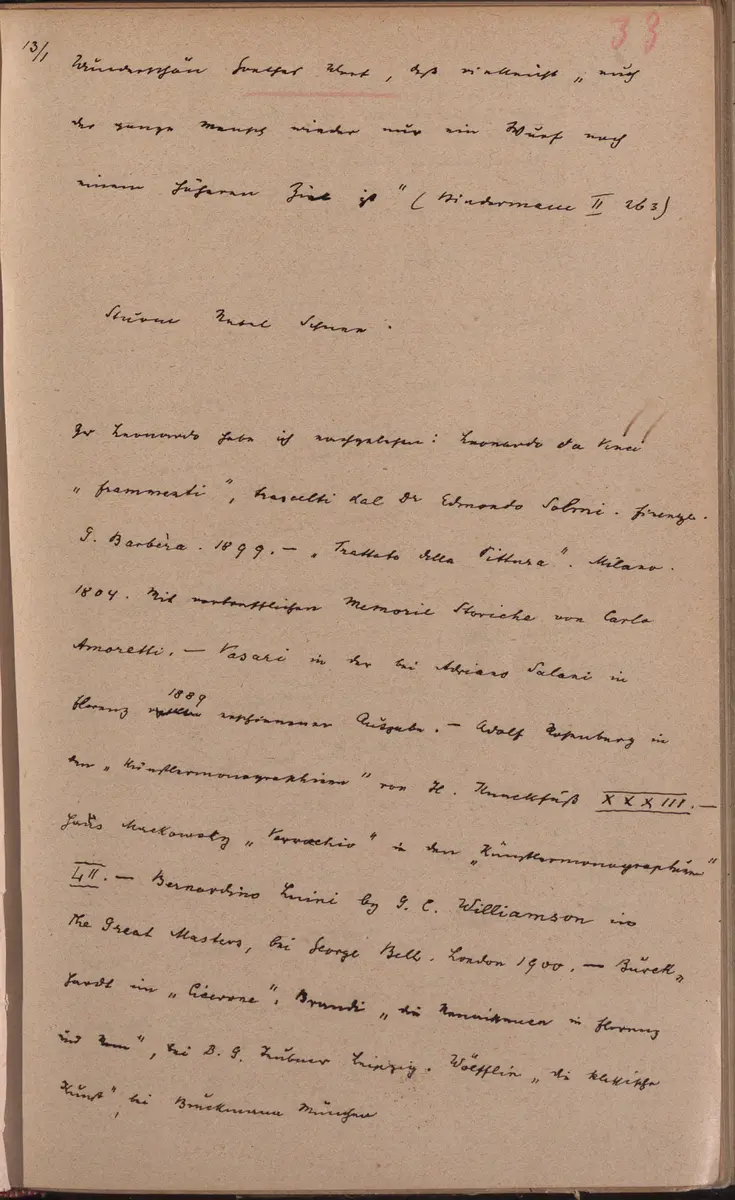 33
13/1
Wunderschön Goethes Wort, daß vielleicht „auch
der ganze Mensch wieder nur ein Wurf nach
einem höheren Ziel ist“ (Biedermann II 263)
Sturm Nebel Schnee.
Zu Leonardo habe ich nachgelesen: Leonardo da Vinci
„frammenti“, trascelti dal Dr Edmondo Solmi. Firenze.
G. Barbèra. 1899. — „Trattato della Pittura“. Milano.
1804. Mit vortrefflichen Memorie Storiche von Carlo
Amoretti. — Vasari in der bei Adriano Salani in
1889
Florenz erschienenen Ausgabe. — Adolf Rosenberg in
den „Künstlermonographien“ von H. Knackfuß XXXIII. —
Hans Mackowsky „Verrochio“ in den „Künstlermonographien“
LII. — Bernardino Luini by G. C. Williamson in
The Great Masters, bei George Bell. London 1900. — Burck„
hardt im „Cicerone“. Brandi „die Renaissance in Florenz
und Rom“, bei B. G. Teubner Leipzig. Wölfflin „die klassische
Kunst“, bei Bruckmann München